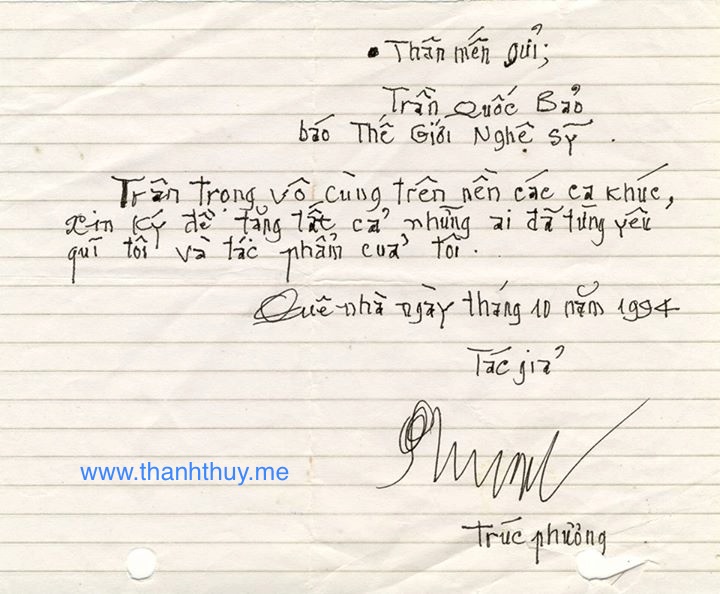 Thân mến gửi;
Trần Quốc Bảo
báo Thế Giới Nghệ Sỹ .
Trân trọng vô cùng trên nền các ca khúc,
xin ký đề tặng tất cả những ai đã từng yêu
quí tôi và tác phẩm của tôi .
Quê nhà ngày tháng 10 năm 1994
Tác giả
www.thanhthuy.me
Trúc phương